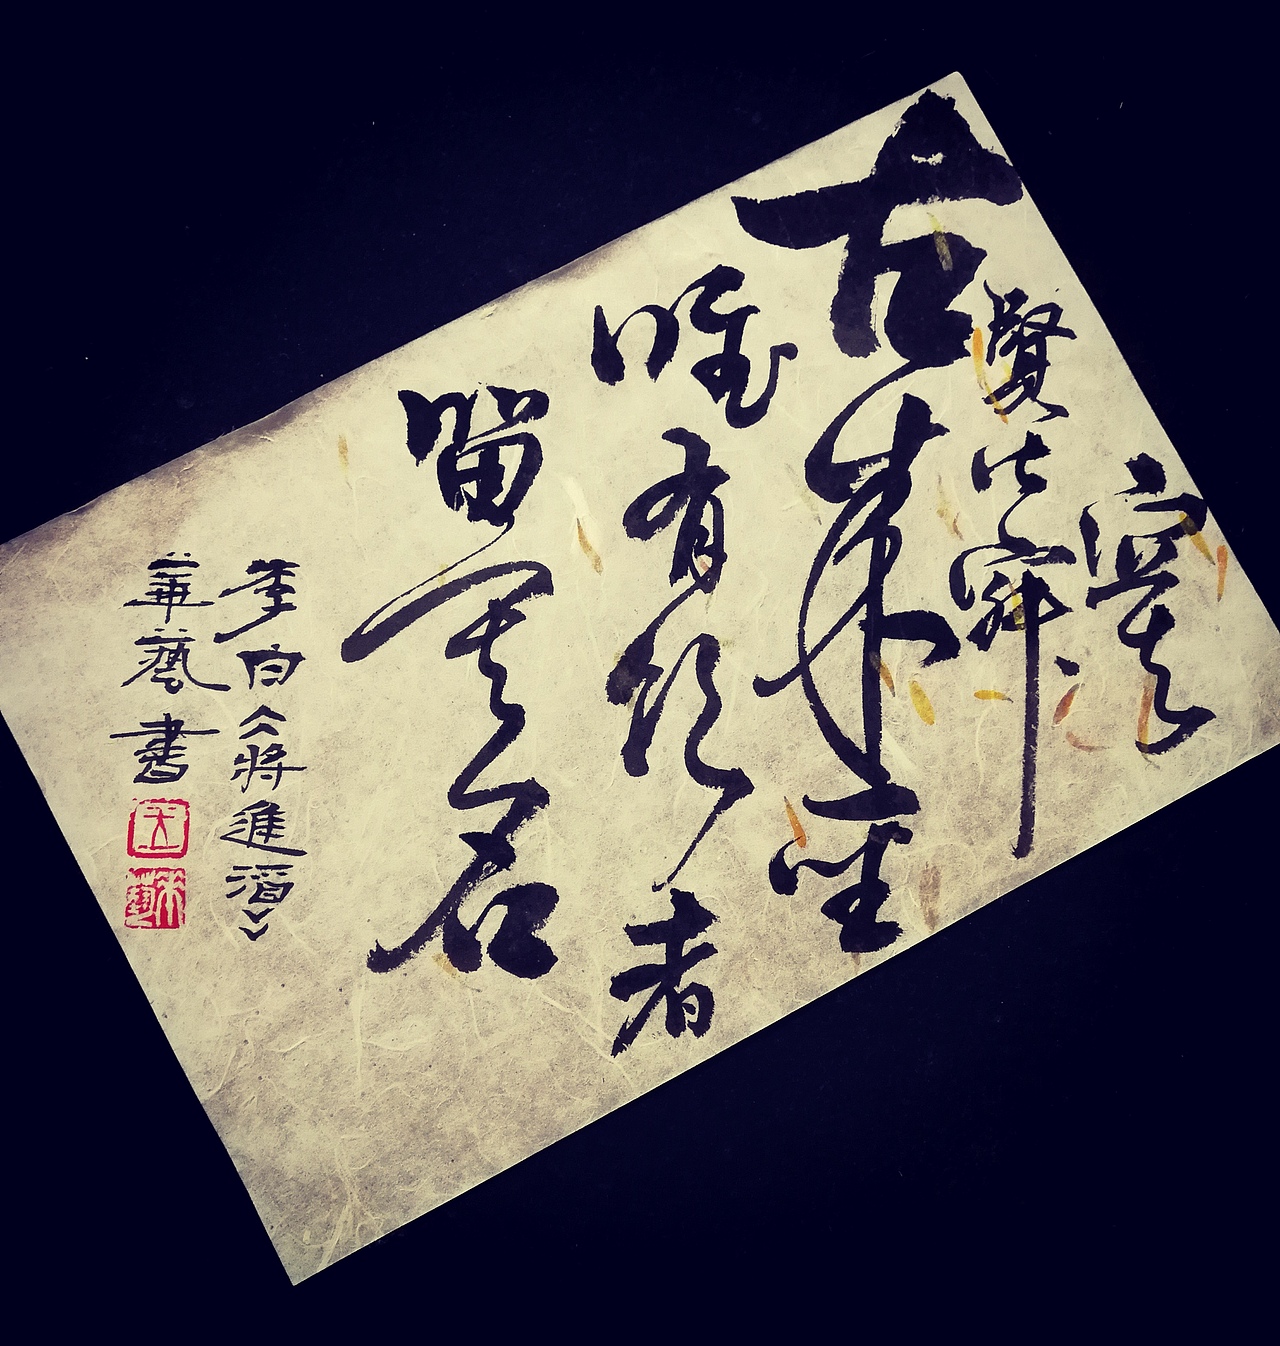 古來聖
賢皆寂
寞
唯有飲者
留其名
李白《將進酒》
華藝書